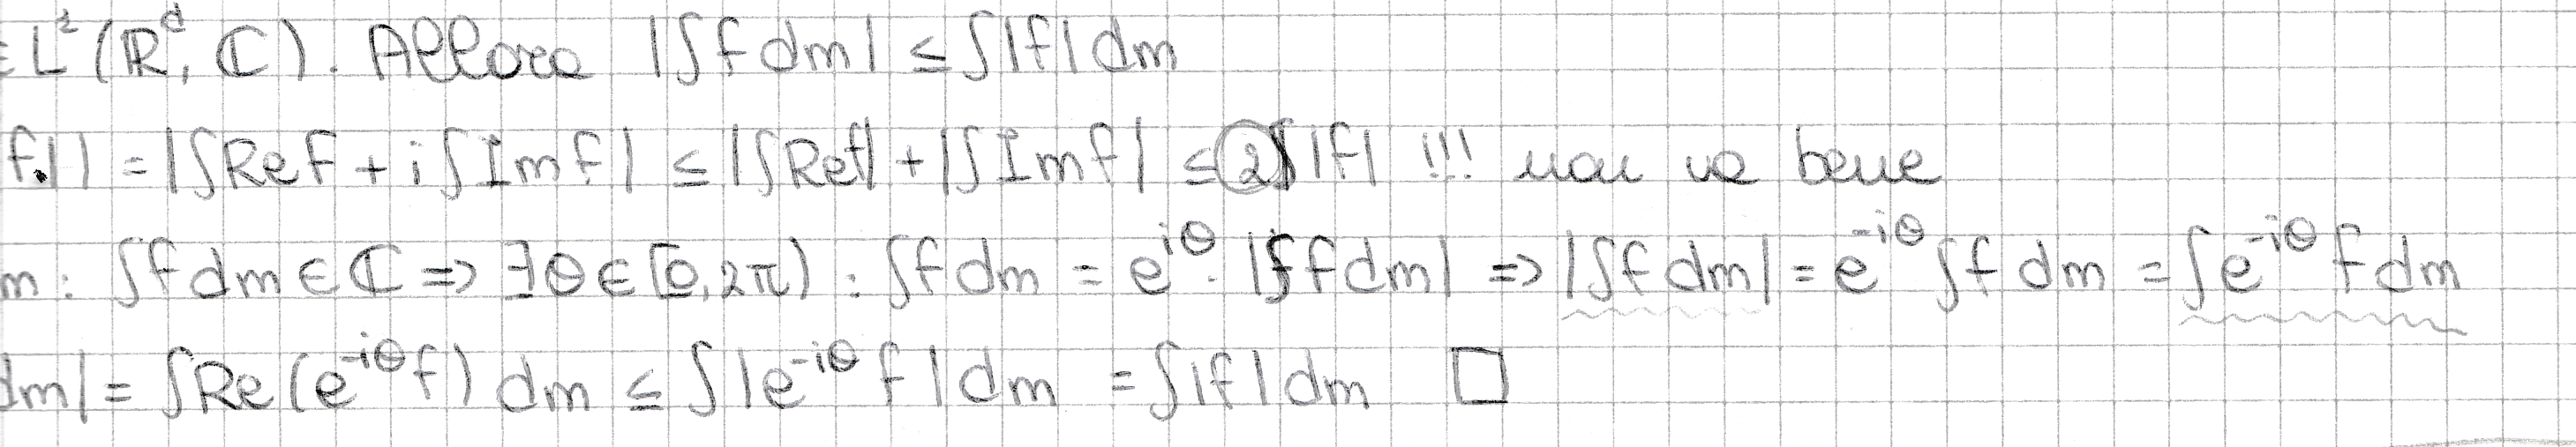 ∈ L¹(ℝᵈ, ℂ). Allora |∫f dm| ≤ ∫|f| dm
f.|| = |∫Re f + i∫Im f| ≤ |∫Re f| + |∫Im f| ≤ 2∫|f| !!! non va bene
m: ∫f dm ∈ ℂ => ∃θ ∈ [0, 2π) : ∫f dm = e^{iθ} · |∫f dm| => |∫f dm| = e^{-iθ} ∫f dm = ∫e^{-iθ} f dm
dm| = ∫Re(e^{-iθ} f) dm ≤ ∫|e^{-iθ} f| dm = ∫|f| dm □